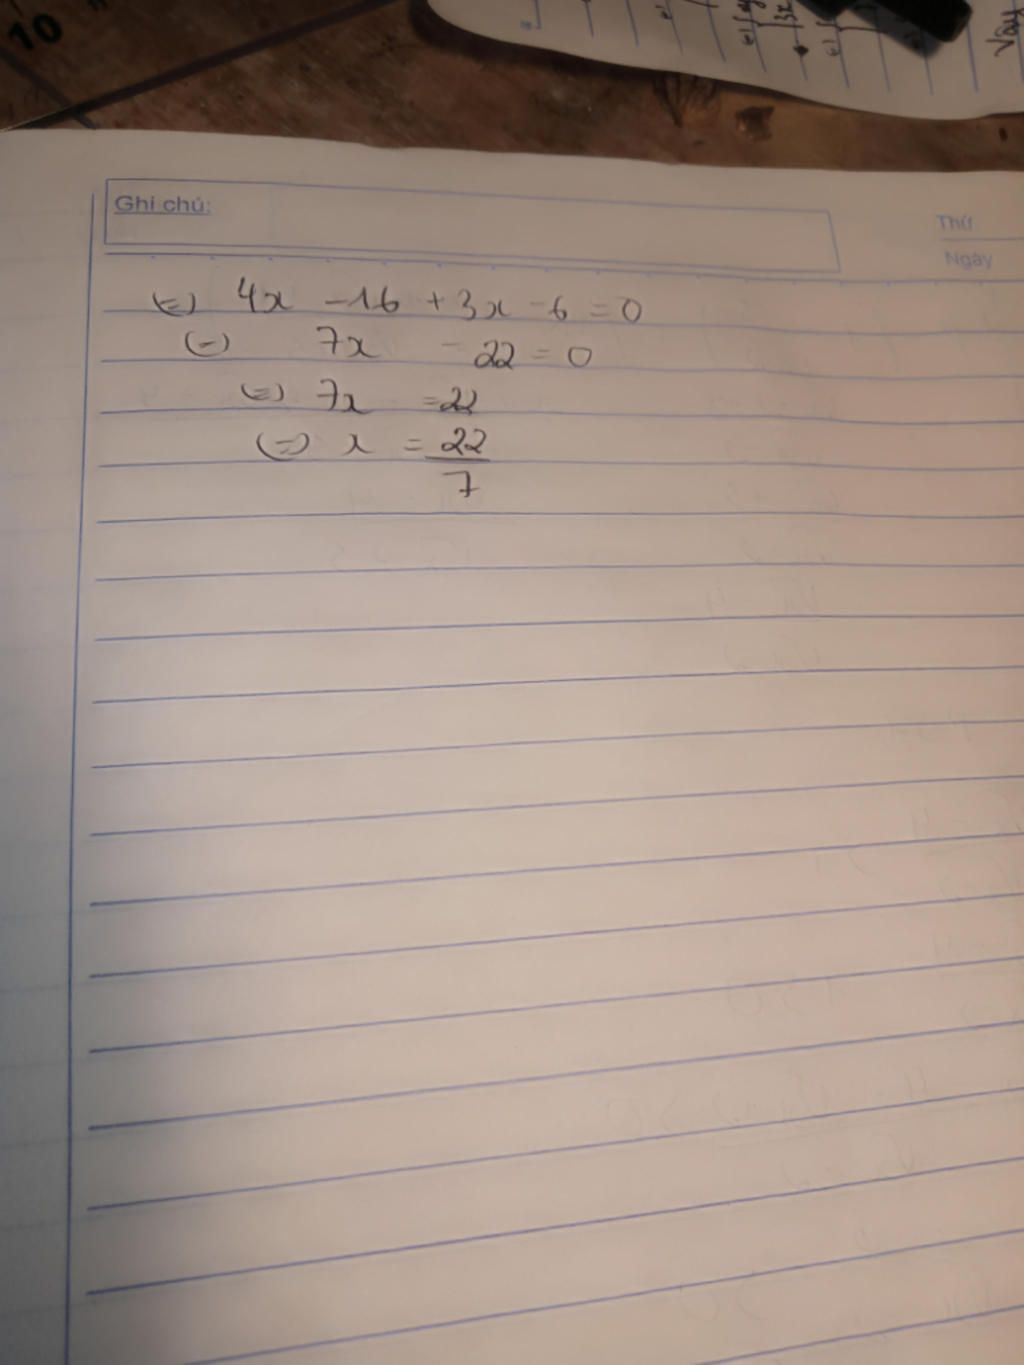 10
Ghi chú:
Thứ
Ngày
(=) 4x - 16 + 3x - 6 = 0
(-) 7x - 22 = 0
(=) 7x = 22
(=) x = 22/7